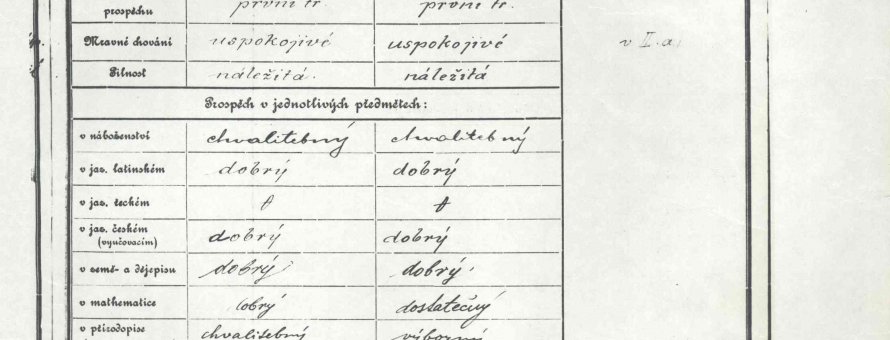 prospěchu první tř. první tř.
Mravné chování uspokojivé uspokojivé v I. a
Pilnost náležitá. náležitá
Prospěch v jednotlivých předmětech:
v náboženství chvalitebný chvalitebný
v jaz. latinském dobrý dobrý
v jaz. řeckém
v jaz. českém dobrý dobrý
(vyučovacím)
v země- a dějepisu dobrý dobrý
v mathematice dobrý dostatečný
v přírodopise chvalitebný výborný